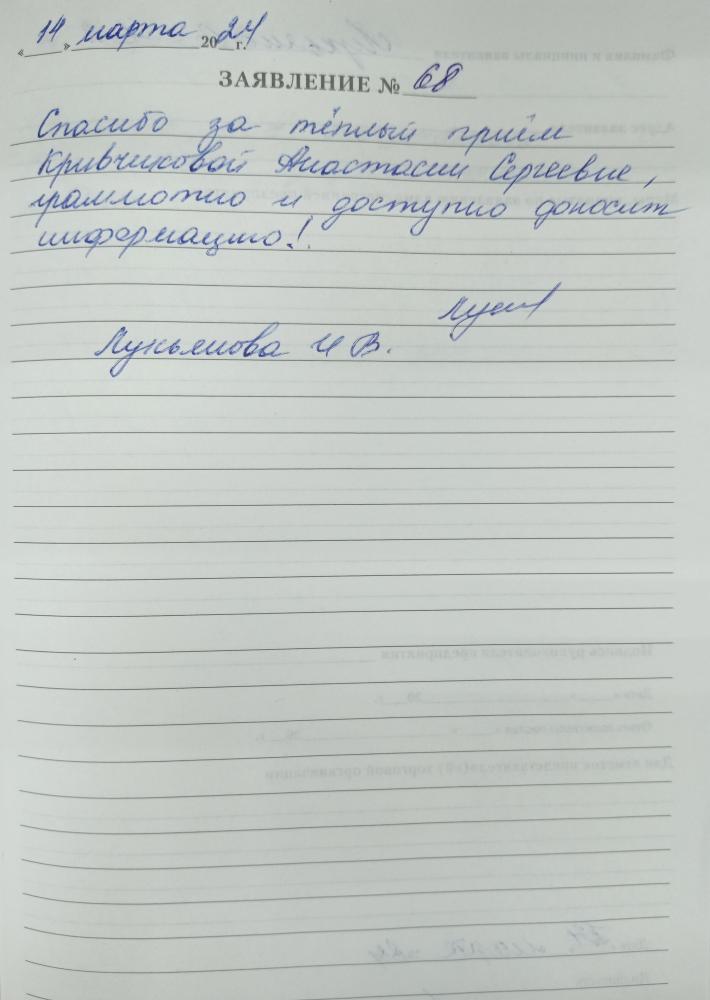 « 14 » марта 2024 г.
ЗАЯВЛЕНИЕ № 68
Спасибо за тёплый приём
Кривчиковой Анастасии Сергеевне,
граммотно и доступно доносит
информацию!
Лукьянова И В.